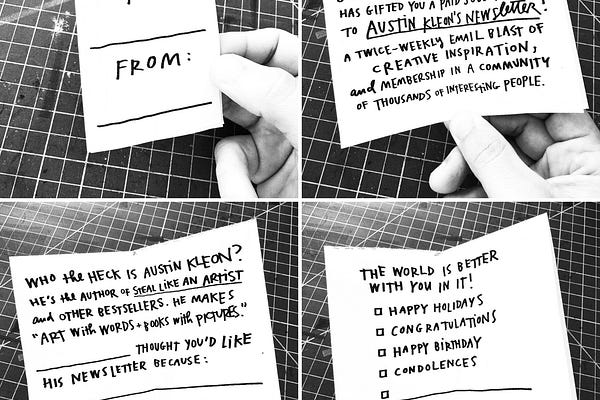 FROM:
HAS GIFTED YOU A PAID
TO AUSTIN KLEON'S NEWSLETTER!
A TWICE-WEEKLY EMAIL BLAST OF
CREATIVE INSPIRATION,
and MEMBERSHIP IN A COMMUNITY
OF THOUSANDS OF INTERESTING PEOPLE.
WHO the HECK IS AUSTIN KLEON?
HE'S the AUTHOR OF STEAL LIKE AN ARTIST
and OTHER BESTSELLERS. HE MAKES
"ART with WORDS + BOOKS with PICTURES."
THOUGHT YOU'D LIKE
HIS NEWSLETTER BECAUSE:
THE WORLD IS BETTER
WITH YOU IN IT!
HAPPY HOLIDAYS
CONGRATULATIONS
HAPPY BIRTHDAY
CONDOLENCES